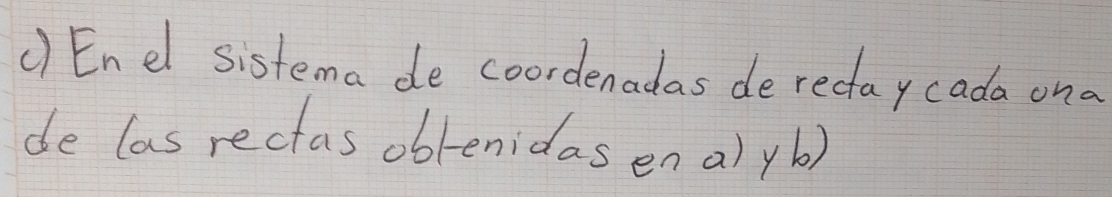 c) En el sistema de coordenadas de recta y cada una
de las rectas obtenidas en a) y b)